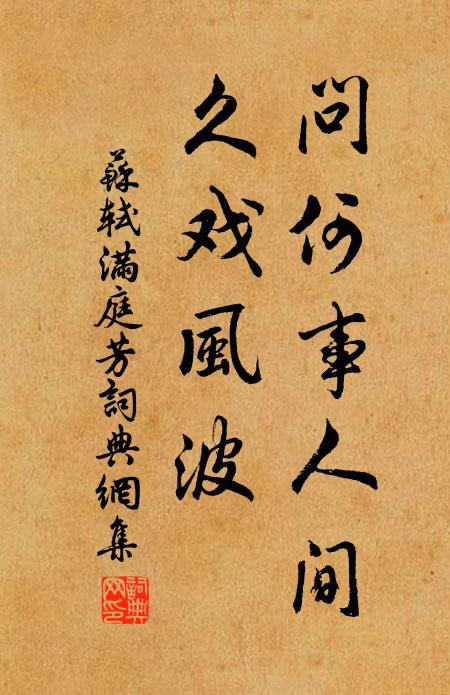 問何事人间
久戏風波
蘇軾滿庭芳詞典網集
詞典
网印